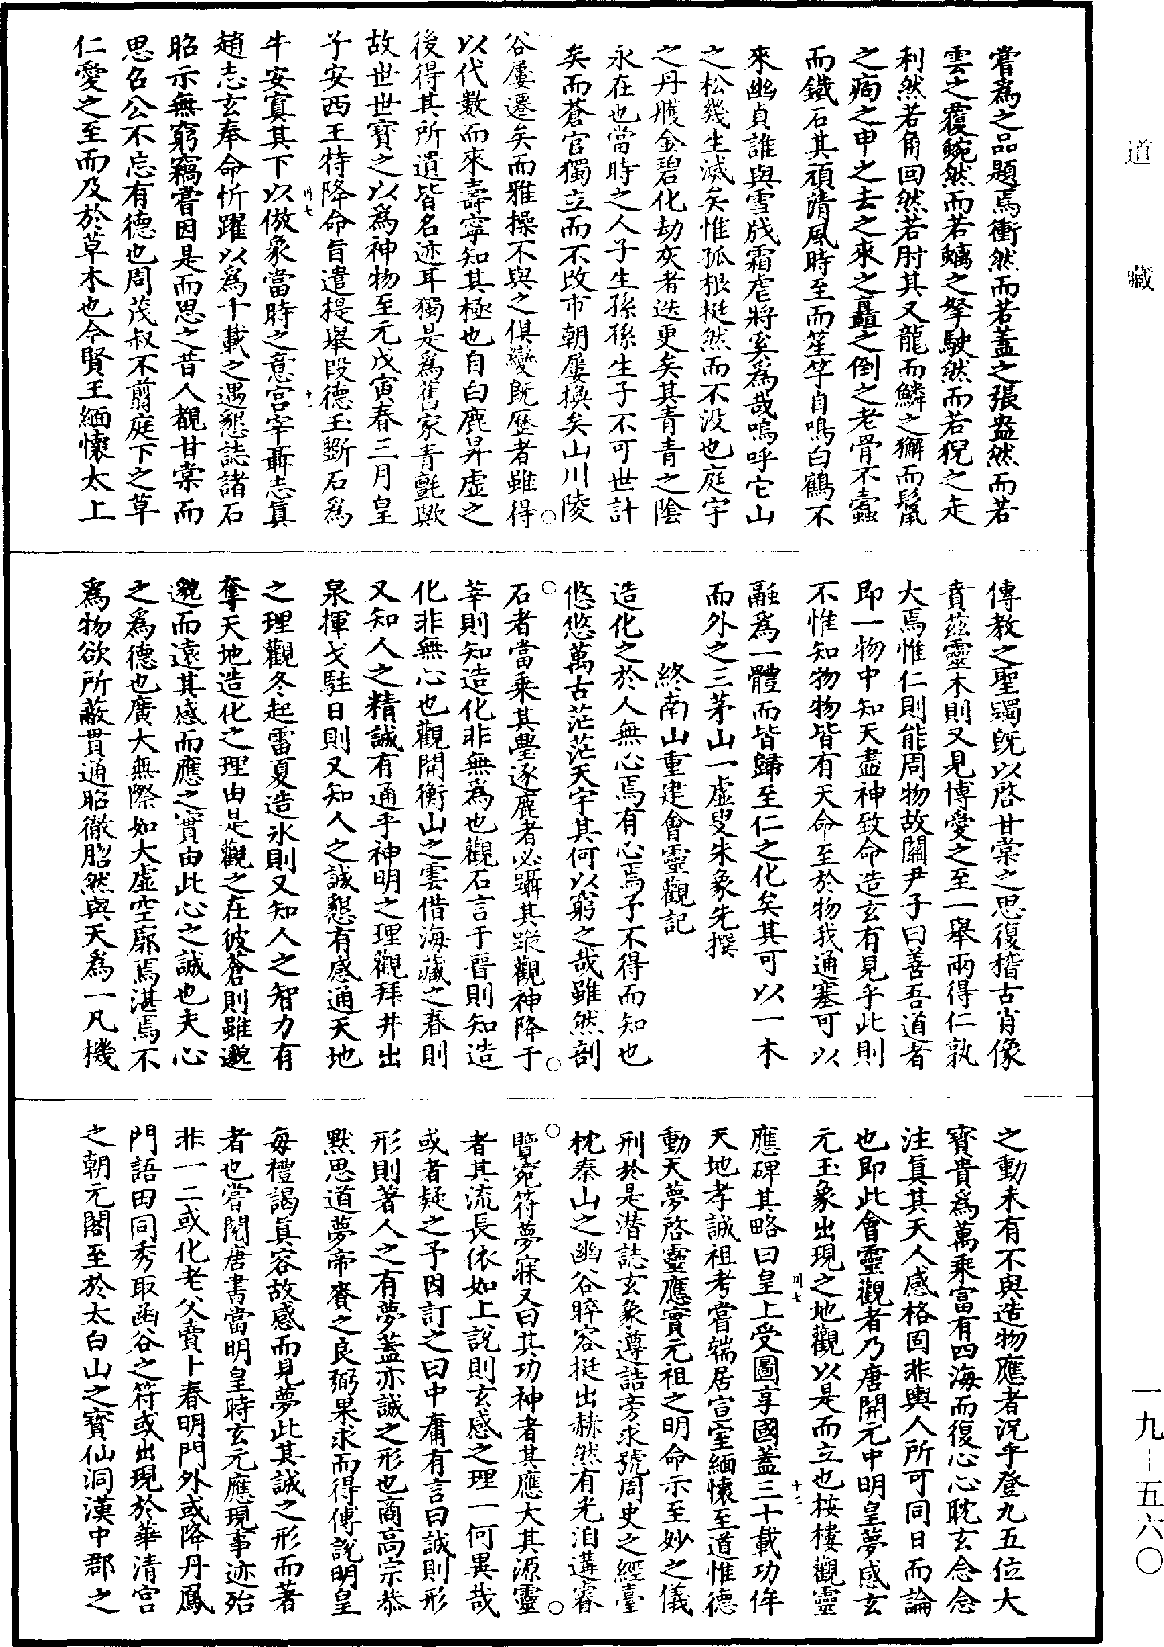 道藏
嘗為之品題焉衝然而若蓋之張盎然而若
雲之覆蜿然而若螭之拏駛然而若猊之走
利然若角回然若肘其又龍而鱗之獬而鬣
之痀之申之去之來之矗之倒之老骨不蠹
而鐵石其頑清風時至而笙竽自鳴白鶴不
來幽貞誰與雪戕霜虐將奚為哉嗚呼它山
之松幾生滅矣惟孤根挺然而不没也庭宇
之丹雘金碧化劫灰者迭更矣其青青之陰
永在也當時之人子生孫孫生子不可世計
矣而蒼官獨立而不改市朝屢換矣山川陵
谷屢遷矣而雅操不與之俱變既歷者雖得
以代數而來壽寧知其極也自白鹿昇虛之
後得其所遺皆名迹耳獨是為舊家青氈歟
故世世寶之以為神物至元戊寅春三月皇
子安西王特降命旨遣提舉段德玉斵石為
牛安寘其下以倣象當時之意宫宰聶志真
趙志玄奉命忻躍以為千載之遇懇誌諸石
昭示無窮竊嘗因是而思之昔人覩甘棠而
思召公不忘有德也周茂叔不翦庭下之草
仁愛之至而及於草木也今賢王緬懷太上
傳教之聖躅既以啓甘棠之思復稽古肖像
賁茲靈木則又見博愛之至一舉兩得仁孰
大焉惟仁則能周物故關尹子曰善吾道者
即一物中知天盡神致命造玄有見乎此則
不惟知物物皆有天命至於物我通塞可以
融為一體而皆歸至仁之化矣其可以一木
而外之三茅山一虛叟朱象先撰
終南山重建會靈觀記
造化之於人無心焉有心焉予不得而知也
悠悠萬古茫茫天宇其何以窮之哉雖然剖
石者當乘其璺逐鹿者必躡其蹤觀神降于
莘則知造化非無為也觀石言于晉則知造
化非無心也觀開衡山之雲借海藏之春則
又知人之精誠有通乎神明之理觀拜井出
泉揮戈駐日則又知人之誠懇有感通天地
之理觀冬起雷夏造氷則又知人之智力有
奪天地造化之理由是觀之在彼蒼則雖邈
邈而遠其感而應之實由此心之誠也夫心
之為德也廣大無際如大虛空廓焉湛焉不
為物欲所蔽貫通昭徹脗然與天為一凡機
之動未有不與造物應者況乎登九五位大
寶貴為萬乘富有四海而復心心耽玄念念
注真其天人感格固非與人所可同日而論
也即此會靈觀者乃唐開元中明皇夢感玄
元玉象出現之地觀以是而立也桉樓觀靈
應碑其略曰皇上受圖享國蓋三十載功侔
天地孝誠祖考嘗端居宣室緬懷至道惟德
動天夢啓靈應實元祖之明命示至妙之儀
刑於是潛誌玄象遵誥旁求號周史之經臺
枕秦山之幽谷睟容挺出赫然有光洎遘睿
覽宛符夢寐又曰其功神者其應大其源靈
者其流長依如上說則玄感之理一何異哉
或者疑之予因訂之曰中庸有言曰誠則形
形則著人之有夢蓋亦誠之形也商高宗恭
默思道夢帝賚之良弼果求而得傅說明皇
每禮謁真容故感而見夢此其誠之形而著
者也嘗閱唐書當明皇時玄元應現事迹殆
非一二或化老父賣卜春明門外或降丹鳳
門語田同秀取函谷之符或出現於華清宫
之朝元閣至於太白山之寶仙洞漢中郡之
一九-五六〇